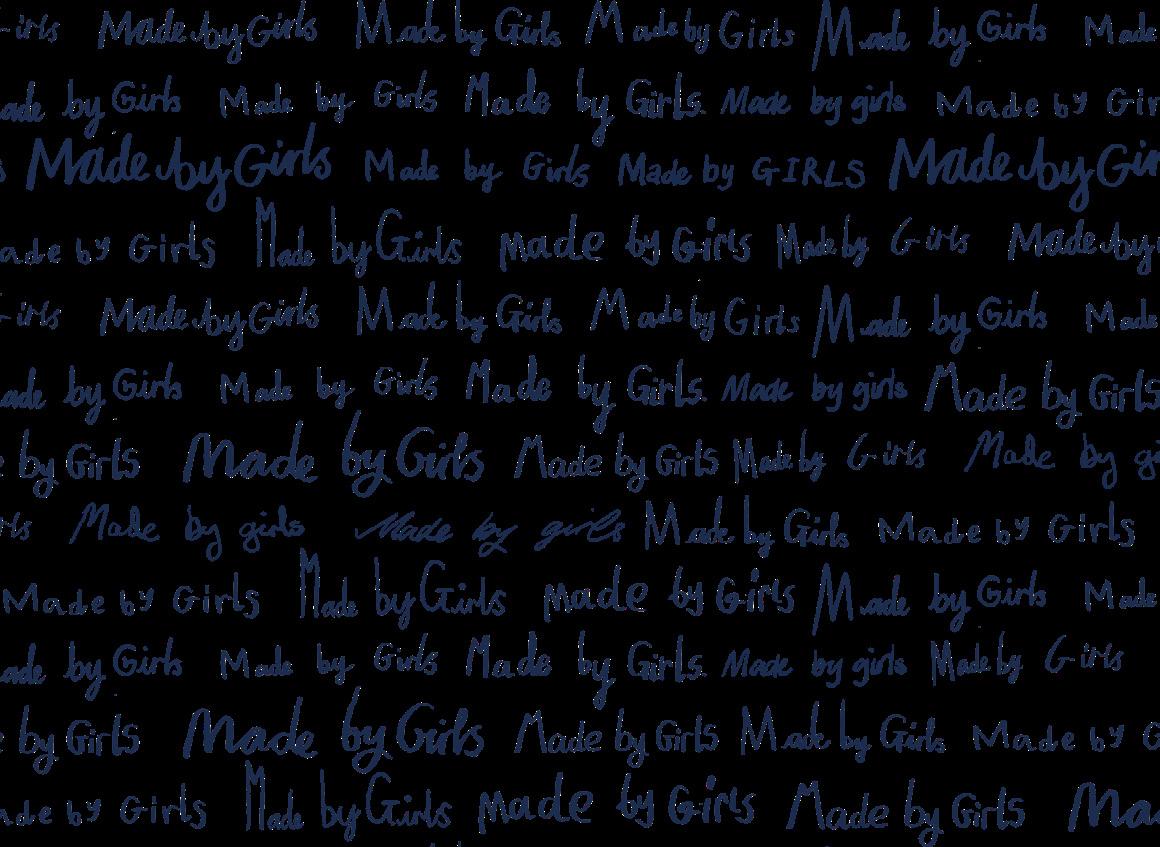 Girls Made by Girls Made by Girls Made by Girls Made by Girls Made
Made by Girls Made by Girls Made by Girls. Made by girls Made by Gir
s Made by Girls Made by Girls Made by GIRLS Made by Gir
Made by Girls Made by Girls Made by Girls Made by Girls Made by
Girls Made by Girls Made by Girls Made by Girls Made by Girls Made
ade by Girls Made by Girls Made by Girls. Made by girls Made by Girls
e by Girls Made by Girls Made by Girls Made by Girls Made by gi
rls Made by girls Made by girls Made by Girls Made by Girls
Made by Girls Made by Girls Made by Girls Made by Girls Made
ade by Girls Made by Girls Made by Girls. Made by girls Made by Girls
e by Girls Made by Girls Made by Girls Made by Girls Made by G
ade by Girls Made by Girls Made by Girls Made by Girls Ma